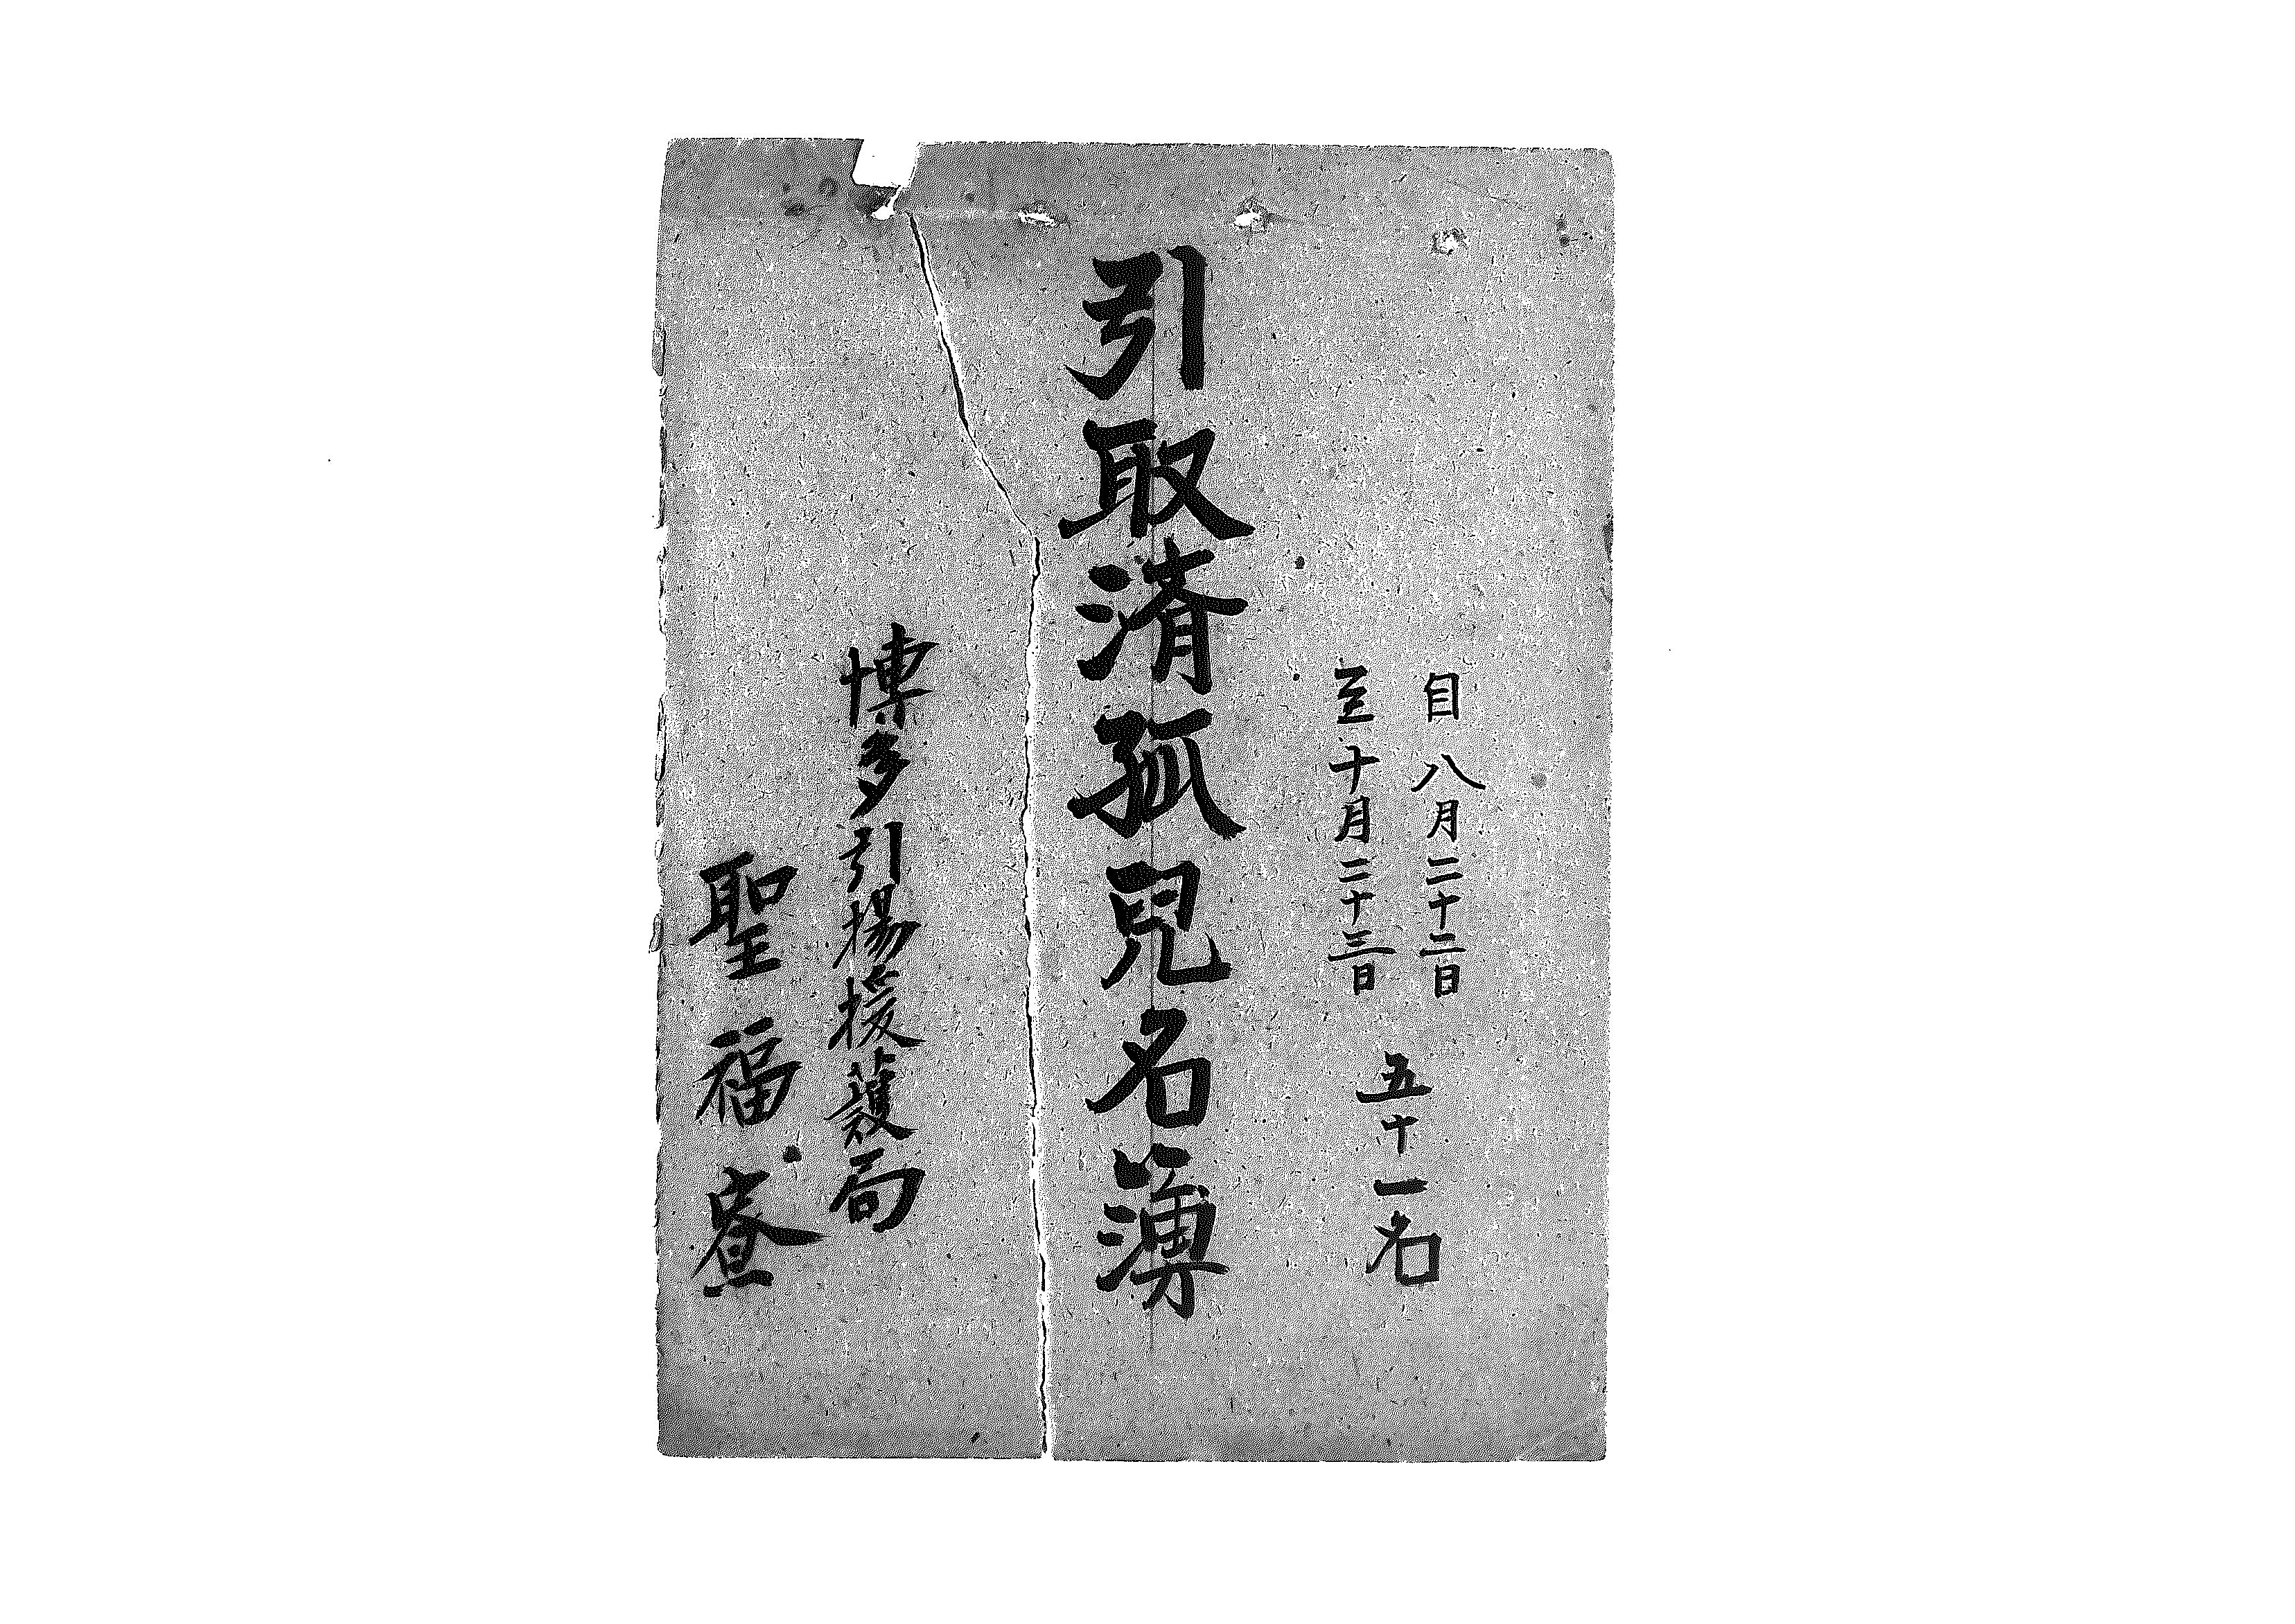 自八月二十二日
至十月二十三日
五十一名
引取済孤児名簿
博多引揚援護局
聖福寮